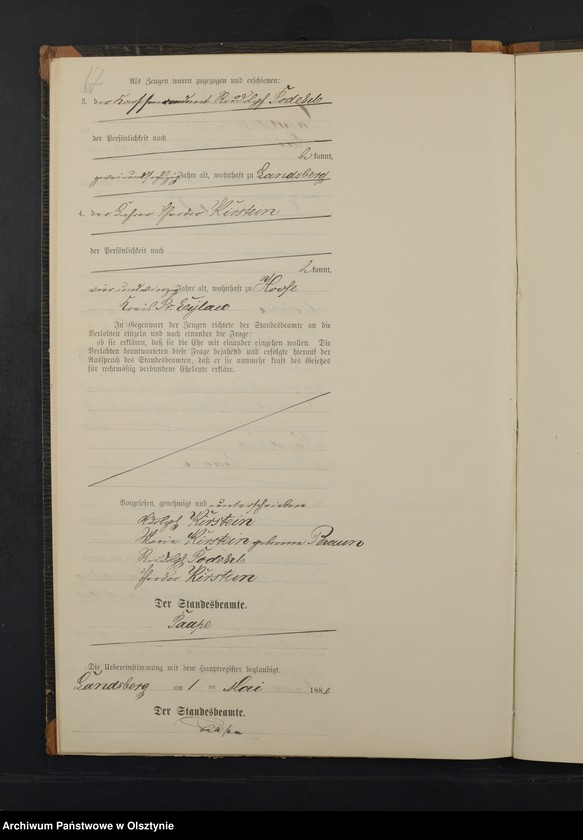 17
Als Zeugen waren zugezogen und erschienen:
3. der Rudolph Podehl
der Persönlichkeit nach
bekannt,
zweiundsechzig Jahre alt, wohnhaft zu Landsberg
4. der Lehrer Theodor Kirstein
der Persönlichkeit nach
bekannt,
vierundvierzig Jahre alt, wohnhaft zu Hoofe
Kreis Pr. Eylau
In Gegenwart der Zeugen richtete der Standesbeamte an die
Verlobten einzeln und nach einander die Frage:
ob sie erklären, daß sie die Ehe mit einander eingehen wollen. Die
Verlobten beantworteten diese Frage bejahend und erfolgte hierauf der
Ausspruch des Standesbeamten, daß er sie nunmehr kraft des Gesetzes
für rechtmäßig verbundene Eheleute erkläre.
Vorgelesen, genehmigt und unterschrieben
Adolph Kirstein
Marie Kirstein geborene Braun
Rudolph Podehl
Theodor Kirstein
Der Standesbeamte.
Paape
Die Uebereinstimmung mit dem Hauptregister beglaubigt.
Landsberg am 1 ten Mai 188
Der Standesbeamte.
Paape
Archiwum Państwowe w Olsztynie